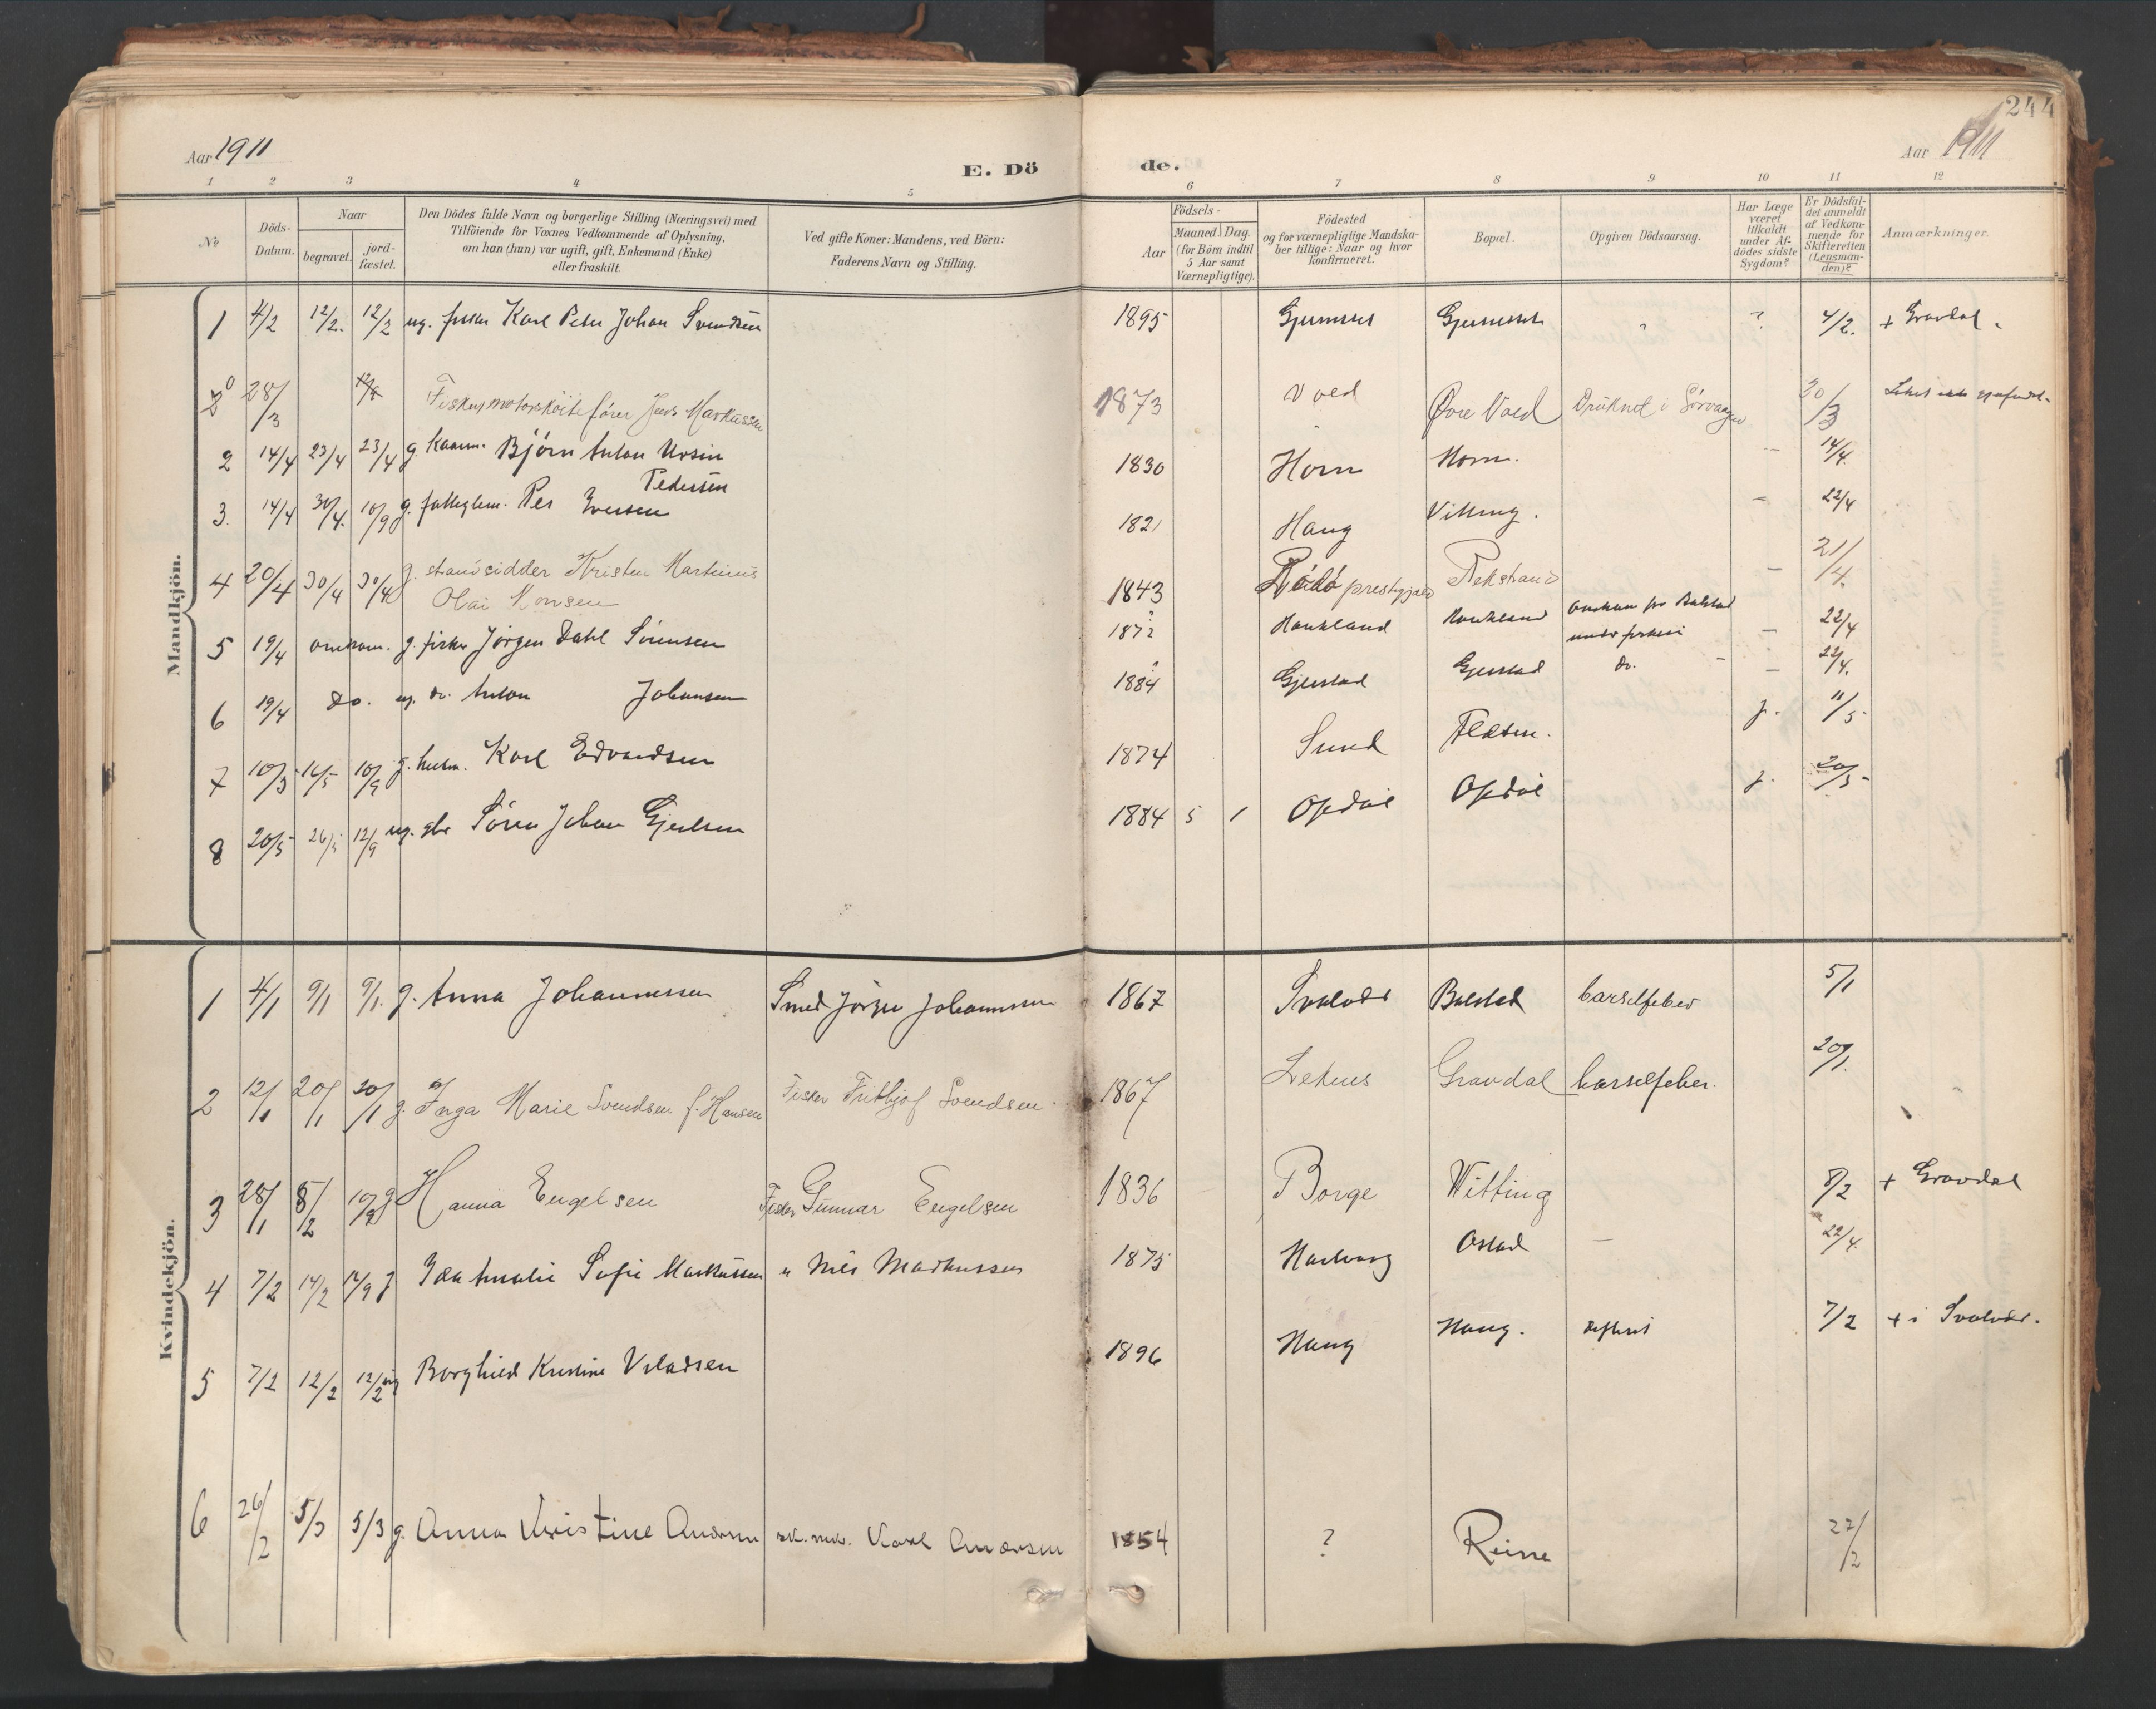 244
Aar 1911
E. Dö de.
Aar 1911
1 2 3 4 5 6 7 8 9 10 11 12
No
Döds-Datum.
Naar
begravet.
jord-fæstet.
Den Dödes fulde Navn og borgerlige Stilling (Næringsvei) med
Tilföiende for Voxnes Vedkommende af Oplysning,
om han (hun) var ugift, gift, Enkemand (Enke)
eller fraskilt.
Ved gifte Koner: Mandens, ved Börn:
Faderens Navn og Stilling.
Födsels-
Aar
Maaned. Dag.
(for Börn indtil
5 Aar samt
Værnepligtige).
Födested
og for værnepligtige Mandska-
ber tillige: Naar og hvor
konfirmeret.
Bopæl.
Opgiven Dödsaarsag.
Har Læge
været
tilkaldt
under Af-
dödes sidste
Sygdom?
Er Dödsfal-
det anmeldt
af Vedkom-
mende for
Skifteretten
(Lensman-
den)?
Anmærkninger.
Mandkjön.
1 4/2 12/2. 12/2 ug. fisker Karl Peder Johan Svendsen 1895 ? 4/2. + Gravdal.
28/3 Fisker, motorskøitefører Jens Markussen 1873 Vold Øvre Vold Druknet i Sørvaagen 30/3
2 14/4 23/4 23/4 g. Kaarm. Bjørn Anton Ursin
Pedersen 1830 Horn Horn. - 14/4.
3. 14/4 30/4. 10/9 g. Per Iversen 1821 Haug Vitting. - 22/4
4 20/4 30/4 30/4 g. strandsidder Kristen Martinus
Olai Monsen 1843 Rødø prestegjæld Rekstrand - 21/4.
5 19/4 omkom. g. fisker Jørgen Dahl Sørensen 1872 Haukland Haukland omkom fra Balstad
under fiskeri - 22/4
6 19/4 do. ug. do. Anton Johansen 1884 Gjerstad Gjerstad do. - - 22/4.
7 16/5 10/9 g. Karl Edvardsen 1874 Sund j. 11/5.
8 20/5 26/5 12/9 ug. Søren Johan 1884 5 1 Opdøl Opdøl j. 20/5
Kvindekjön.
1 4/1 9/1 9/1. g. Anna Johannessen Smed Jørgen Johannessen 1867 Svolvær Balstad barselfeber 5/1
2 12/1 20/1 20/1 g. Inga Marie Svendsen f. Hansen Fisker Fritjof Svendsen. 1867 Leknes Gravdal barselfeber. 20/1.
3 28/1 8/2 10/9 g Hanna Engelsen Fisker Gunnar Engelsen 1836 Borge Witting 8/2 + Gravdal
4 7/2 14/2 14/9 g Ida Amalie Sofie Markussen " Nils Markussen 1875 Ostad - 22/4.
5 7/2 12/2 12/2 ug Borghild Kristine 1896 Haug Haug. 7/2 + i Svolvær.
6 26/2 5/3 5/3 g. Anna Kristine Andersen Karl Andersen 1854 ? Reine 27/2